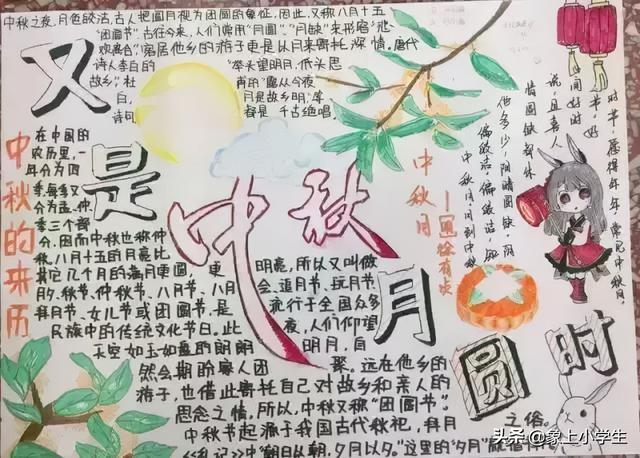 中秋之夜，月色皎洁，古人把圆月视为团圆的象征，因此，又称八月十五
"团圆节"。古往今来，人们常用"月圆"、"月缺"来形容"悲
欢离合"，客居他乡的游子更是以月来寄托深情。唐代
诗人李白的
"举头望明月，低头思
故乡"，杜
甫的"露从今夜
白，
月是故乡明"，等
诗句
都是千古绝唱
又
是
中秋
月
圆
时
中秋的来历
在中国的
农历里，一
年分为四
季，每季又
分为孟、仲、
季三个部
分，因而中秋也称仲
秋。八月十五的月亮比
其它几个月的满月更圆，更
明亮，所以又叫做
月夕、秋节、仲秋节、八月节、八月
会、追月节、玩月节、
拜月节、女儿节或团圆节，是
流行于全国众多
民族中的传统文化节日。此
夜，人们仰望
天空如玉如盘的朗朗
明月，自
然会期盼家人团
聚。远在他乡的
游子，也借此寄托自己对故乡和亲人的
思念之情。所以，中秋又称"团圆节"。
中秋节起源于我国古代秋祀，拜月
之俗。
《礼记》中"朝日以朝，夕月以夕。"这里的"夕月"
中秋月
徐有贞
中秋月，月到中秋
偏皎洁。偏皎洁，知
他多少，阴晴圆缺。阴
晴圆缺都休
说，且喜人
间好时
节。好
时节，愿得年年，常见中秋月。
头条 @象上小学生